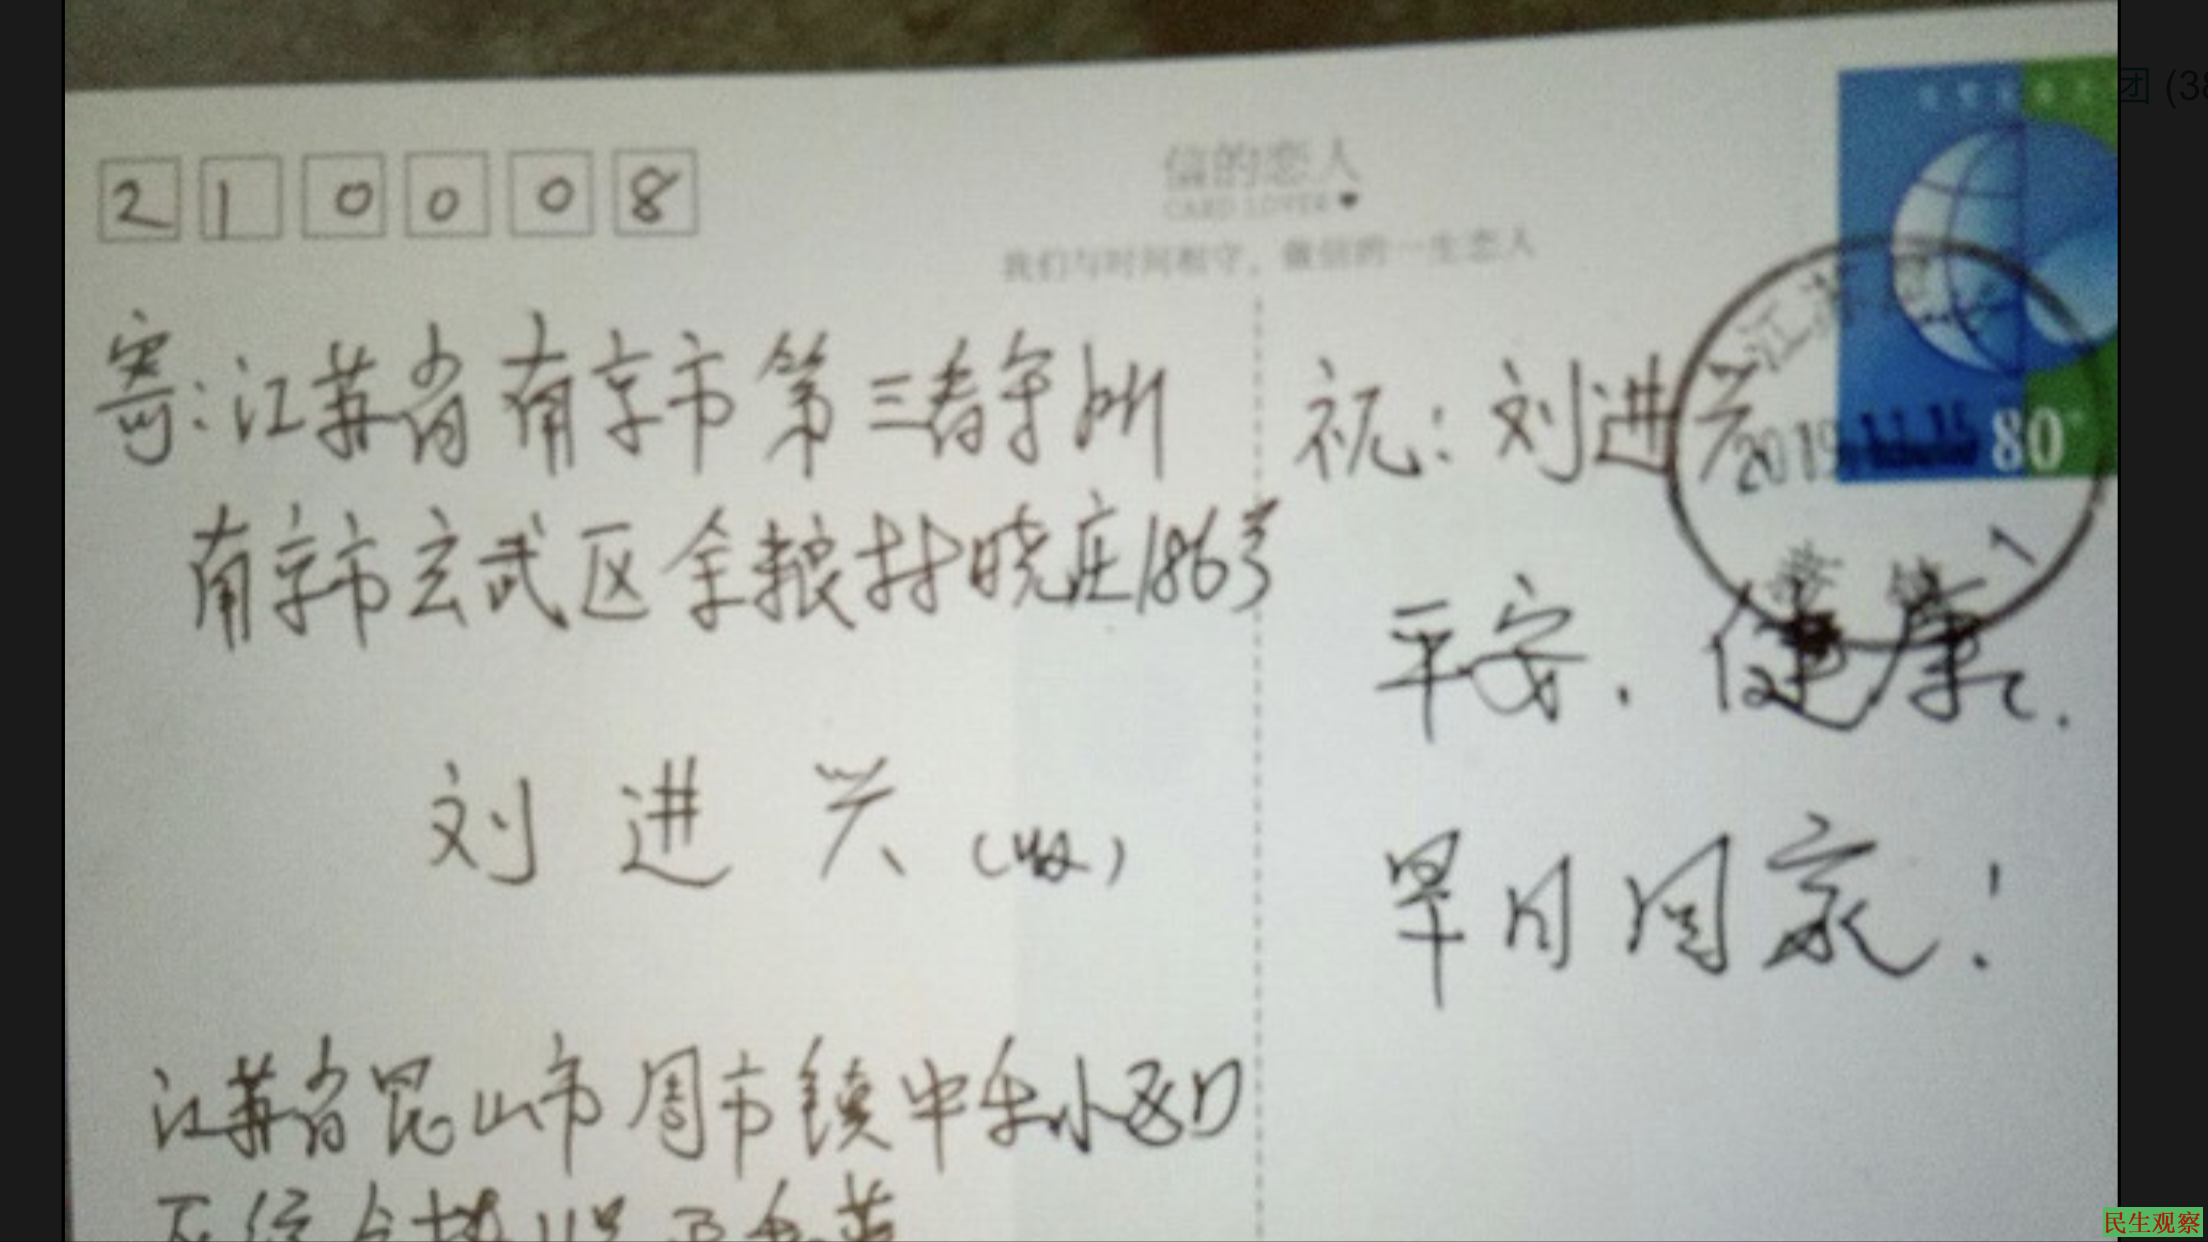 210008
信的恋人
CARD LOVER
我们与时间相守，做信的一生恋人
寄：江苏省南京市第三看守所
南京市玄武区余粮村晓庄186号
刘进兴（收）
江苏省昆山市周市镇中乐小区口
祝：刘进兴
平安．健康．
早日回家！
80
江苏
2019.11.15
团 (38
民生观察